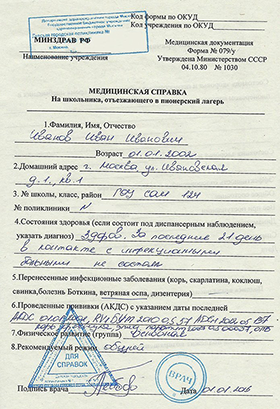 Код формы по ОКУД
Код учреждения по ОКУД
МИНЗДРАВ РФ
Наименование учреждения
Медицинская документация
Форма № 079/у
Утверждена Министерством СССР
04.10.80 № 1030
МЕДИЦИНСКАЯ СПРАВКА
На школьника, отъезжающего в пионерский лагерь
1.Фамилия, Имя, Отчество
Иванов Иван Иванович
Возраст 01.01.2002
2.Домашний адрес г. Москва ул. Ивановская
д.1, кв.1
3. № школы, класс, район ГОУ СОШ 124
№ поликлиники N
4.Состояния здоровья (если состоит под диспансерным наблюдением,
указать диагноз) Здоров. За последние 21 день
в контакте с инфекционными
больными не состоял
5.Перенесенные инфекционные заболевания (корь, скарлатина, коклюш,
свинка,болезнь Боткина, ветряная оспа, дизентерия)
6.Проведенные прививки (АКДС) с указанием даты последней
7.Физическое развитие (группа) Основная
8.Рекомендуемый режим общий
ДЛЯ
СПРАВОК
ВРАЧ
Подпись врача Дата 01.01.2016